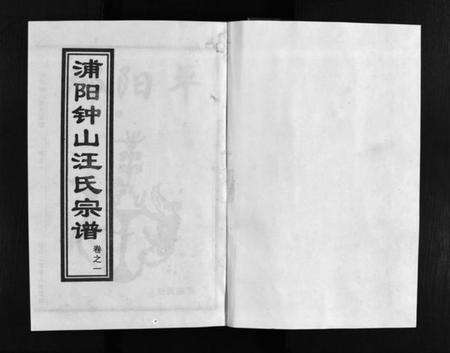 浦阳钟山汪氏宗谱
卷之一